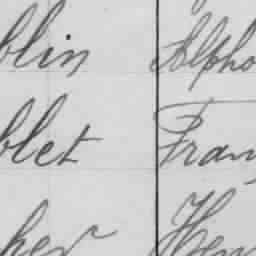 blin Alpho
blet Fran
her Hen